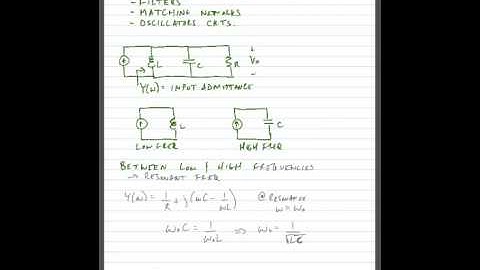 - FILTERS
- MATCHING NETWORKS
- OSCILLATORS CKTS.
L C R + Vo -
Y(ω) = INPUT ADMITTANCE
L C
LOW FREQ HIGH FREQ
BETWEEN LOW / HIGH FREQUENCIES
→ RESONANT FREQ
Y(ω) = 1/R + j(ωC - 1/ωL) @ RESONANCE
ω = ω₀
ω₀C = 1/ω₀L ⇒ ω₀ = 1/√LC